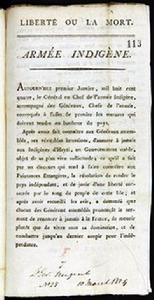 LIBERTÉ OU LA MORT.
113
ARMÉE INDIGÈNE.
AUJOURD'HUI premier Janvier, mil huit cent
quatre, le Général en Chef de l'armée Indigène,
accompagné des Généraux, Chefs de l'armée,
convoqués à l'effet de prendre les mesures qui
doivent tendre au bonheur du pays.
Après avoir fait connaître aux Généraux assem-
blés, ses véritables intentions, d'assurer à jamais
aux Indigènes d'Hayti, un Gouvernement stable,
objet de sa plus vive sollicitude; ce qu'il a fait
par un discours qui tend à faire connaître aux
Puissances Etrangères, la résolution de rendre le
pays indépendant, et de jouir d'une liberté consa-
crée par le sang du peuple de cette île; et
après avoir recueilli les avis, a demandé que
chacun des Généraux assemblés prononçât le ser-
ment de renoncer à jamais à la France, de mourir
plutôt que de vivre sous sa domination, et de
combattre jusqu'au dernier soupir pour l'indé-
pendance.